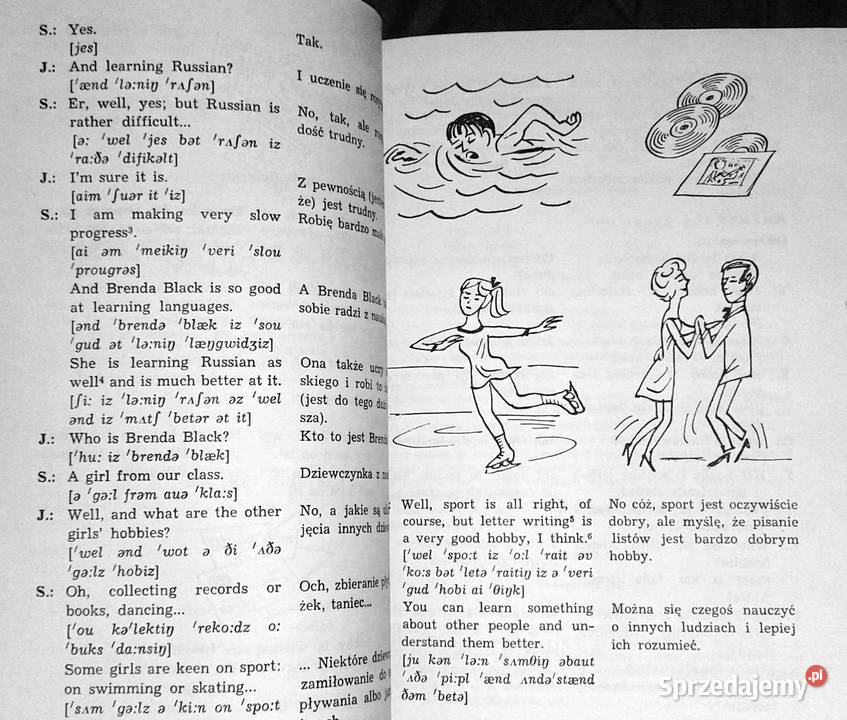 S.: Yes.
[jes]
J.: And learning Russian?
[ˈænd ˈlə:niŋ ˈrʌʃən]
S.: Er, well, yes; but Russian is
rather difficult...
[ə: ˈwel ˈjes bət ˈrʌʃən iz
ˈra:ðə ˈdifikəlt]
J.: I'm sure it is.
[aim ˈʃuər it ˈiz]
S.: I am making very slow
progress³.
[ai əm ˈmeikiŋ ˈveri ˈslou
ˈprougrəs]
And Brenda Black is so good
at learning languages.
[ənd ˈbrendə ˈblæk iz ˈsou
ˈgud ət ˈlə:niŋ ˈlæŋgwidʒiz]
She is learning Russian as
well⁴ and is much better at it.
[ʃi: iz ˈlə:niŋ ˈrʌʃən əz ˈwel
ənd iz ˈmʌtʃ ˈbetər ət it]
J.: Who is Brenda Black?
[ˈhu: iz ˈbrendə ˈblæk]
S.: A girl from our class.
[ə ˈgə:l frəm auə ˈkla:s]
J.: Well, and what are the other
girls' hobbies?
[ˈwel ənd ˈwot ə ði ˈʌðə
ˈgə:lz ˈhobiz]
S.: Oh, collecting records or
books, dancing...
[ˈou kəˈlektiŋ ˈreko:dz o:
ˈbuks ˈda:nsiŋ]
Some girls are keen on sport:
on swimming or skating...
[ˈsʌm ˈgə:lz ə ˈki:n on ˈspo:t
Tak.
I uczenie się
No, tak, ale
dość trudny.
Z pewnością
że) jest trudny.
Robię bardzo
A Brenda Black
sobie radzi z
Ona także uczy
skiego i robi to
(jest do tego
sza).
Kto to jest
Dziewczynka z
No, a jakie są
jęcia innych
Och, zbieranie
żek, taniec...
... Niektóre
zamiłowanie do
pływania albo
Well, sport is all right, of
course, but letter writing⁵ is
a very good hobby, I think.⁶
[ˈwel ˈspo:t iz ˈo:l ˈrait əv
ˈko:s bət ˈletə ˈraitiŋ iz ə ˈveri
ˈgud ˈhobi ai ˈθiŋk]
You can learn something
about other people and un-
derstand them better.
[ju kən ˈlə:n ˈsʌmθiŋ əbaut
ˈʌðə ˈpi:pl ˈænd ʌndəˈstænd
ðəm ˈbetə]
No cóż, sport jest oczywiście
dobry, ale myślę, że pisanie
listów jest bardzo dobrym
hobby.
Można się czegoś nauczyć
o innych ludziach i lepiej
ich rozumieć.
Sprzedajemy.pl